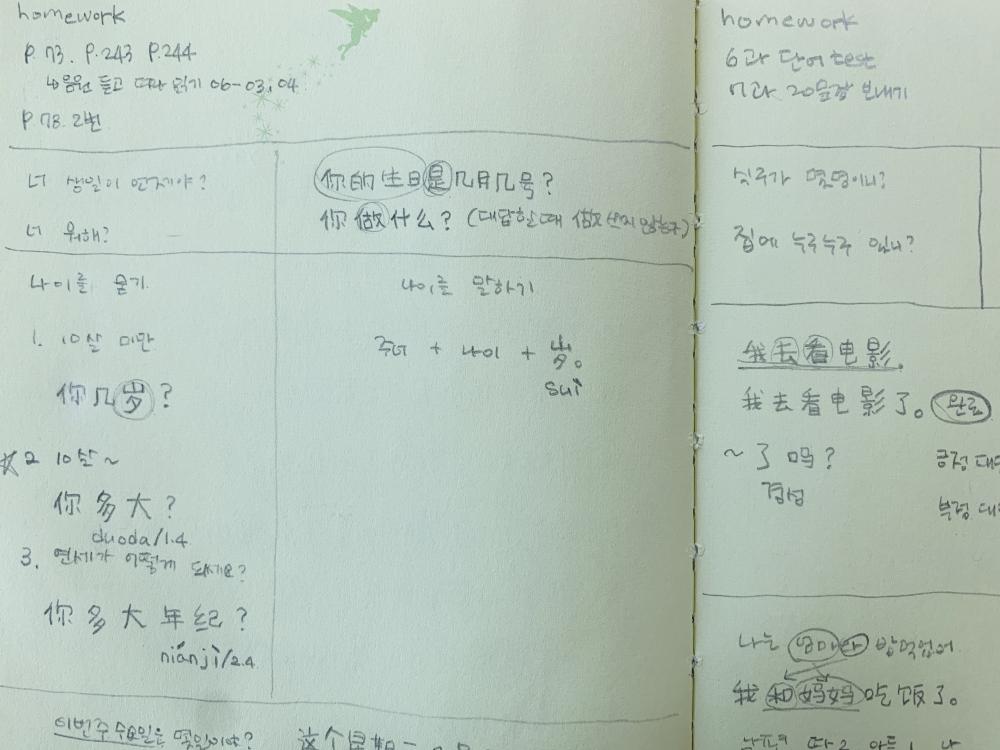 homework
P.73. P.243 P.244
↳음원 듣고 따라 읽기 06-03, 04
P.78. 2번
너 생일이 언제야?
你的生日是几月几号?
너 뭐해?
你做什么? (대답할때 做 쓰지않는다)
나이를 묻기
1. 10살 미만
你几岁?
☆2 10살~
你多大?
duoda/1.4
3. 연세가 어떻게 되세요?
你多大年纪?
niánjì/2.4
나이를 말하기
주어 + 나이 + 岁。
suì
이번주 수요일은 몇일이야?
这个星期
homework
6과 단어 test
7과 20문장 보내기
식구가 몇명이니?
집에 누구누구 있니?
我去看电影。
我去看电影了。 완료
~了吗?
경성
긍정 대
부정 대
나는 엄마와 밥먹었어.
我和妈妈吃饭了。